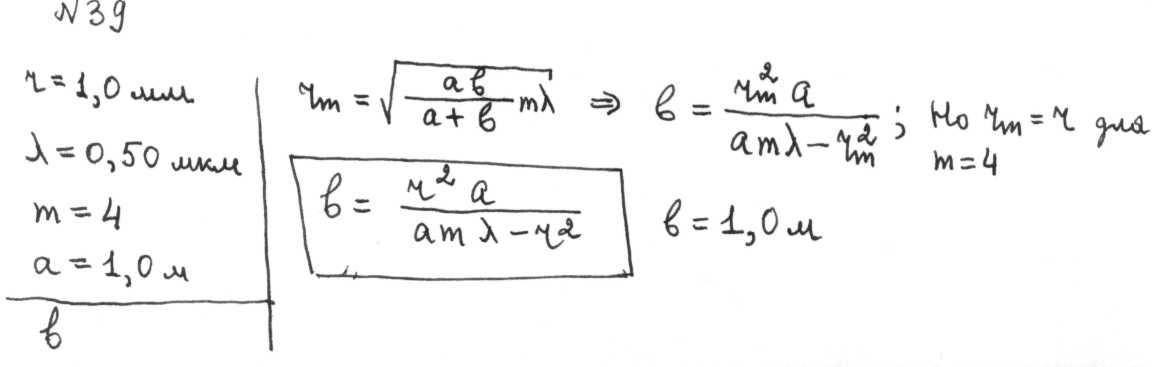 №39
r = 1,0 мм
λ = 0,50 мкм
m = 4
a = 1,0 м
b
r_m = √(ab/(a+b) mλ) ⇒ b = r_m² a/(amλ − r_m²); Но r_m = r для m = 4
b = r² a/(amλ − r²)
b = 1,0 м